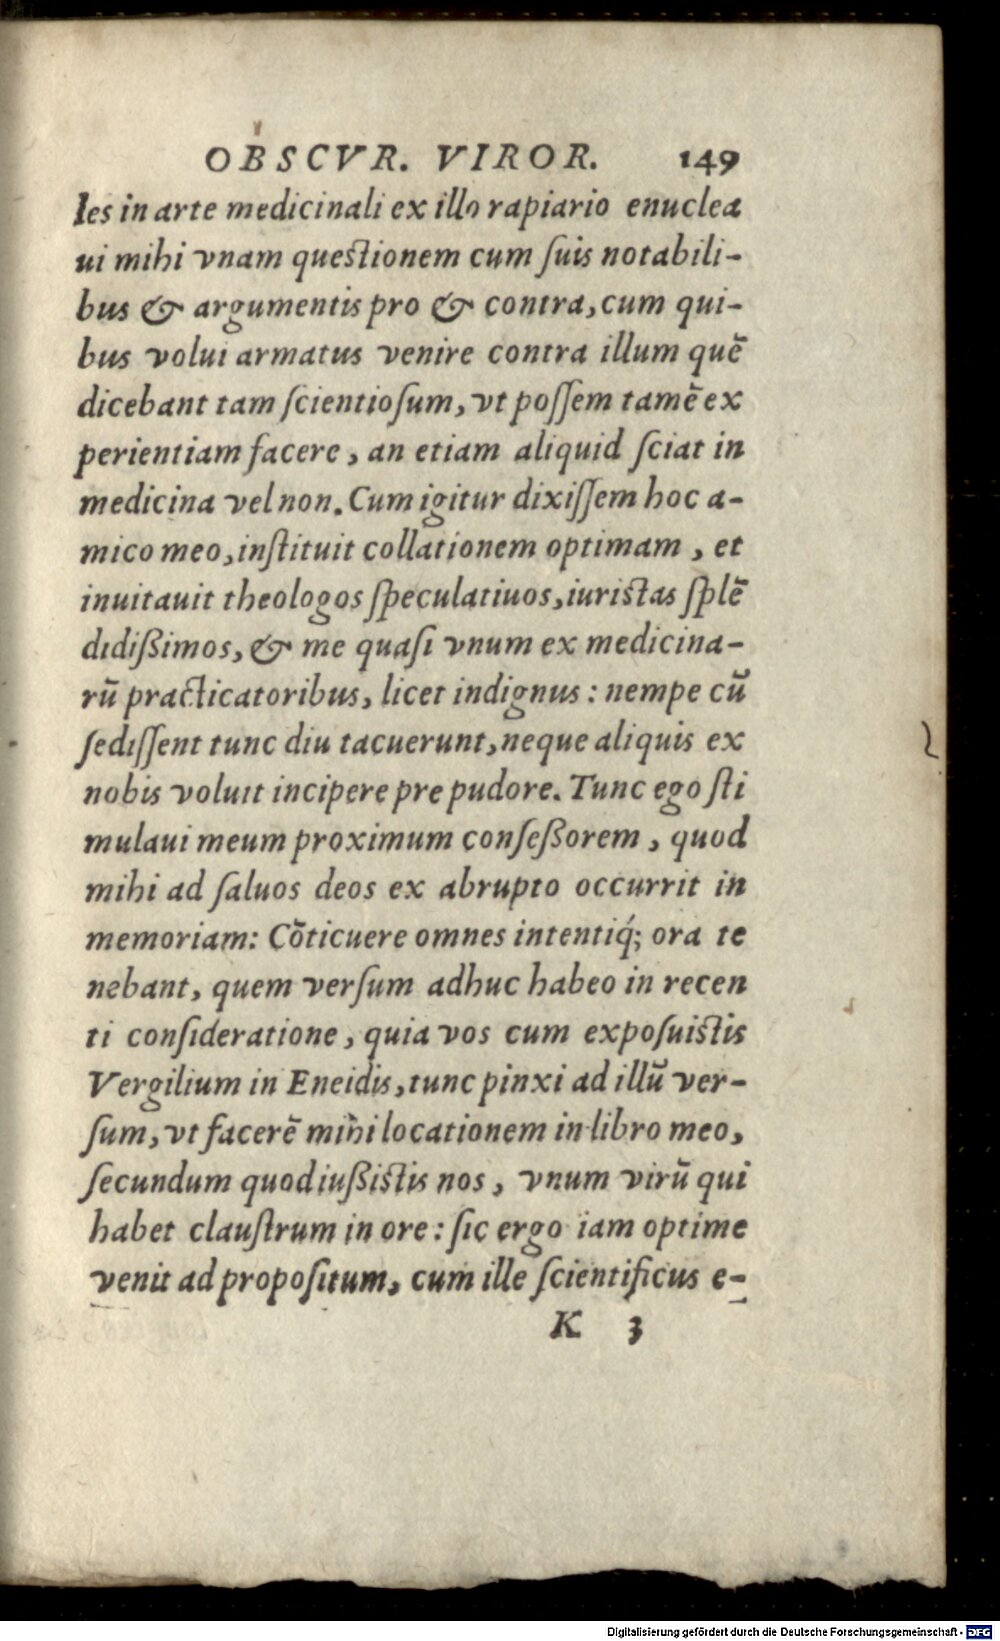 OBSCVR. VIROR. 149
les in arte medicinali ex illo rapiario enuclea
ui mihi vnam questionem cum ſuis notabili-
bus & argumentis pro & contra, cum qui-
bus volui armatus venire contra illum quē
dicebant tam ſcientioſum, vt poſſem tamē ex
perientiam facere, an etiam aliquid ſciat in
medicina vel non. Cum igitur dixiſſem hoc a-
mico meo, inſtituit collationem optimam, et
inuitauit theologos ſpeculatiuos, iuristas ſplē
didißimos, & me quaſi vnum ex medicina-
rū practicatoribus, licet indignus: nempe cū
ſediſſent tunc diu tacuerunt, neque aliquis ex
nobis voluit incipere pre pudore. Tunc ego ſti
mulaui meum proximum conſeßorem, quod
mihi ad ſaluos deos ex abrupto occurrit in
memoriam: Cōticuere omnes intentiq́; ora te
nebant, quem verſum adhuc habeo in recen
ti conſideratione, quia vos cum expoſuistis
Vergilium in Eneidis, tunc pinxi ad illū ver-
ſum, vt facerē mihi locationem in libro meo,
ſecundum quod iußistis nos, vnum virū qui
habet clauſtrum in ore: ſic ergo iam optime
venit ad propoſitum, cum ille ſcientificus e-
K 3
Digitalisierung gefördert durch die Deutsche Forschungsgemeinschaft - DFG